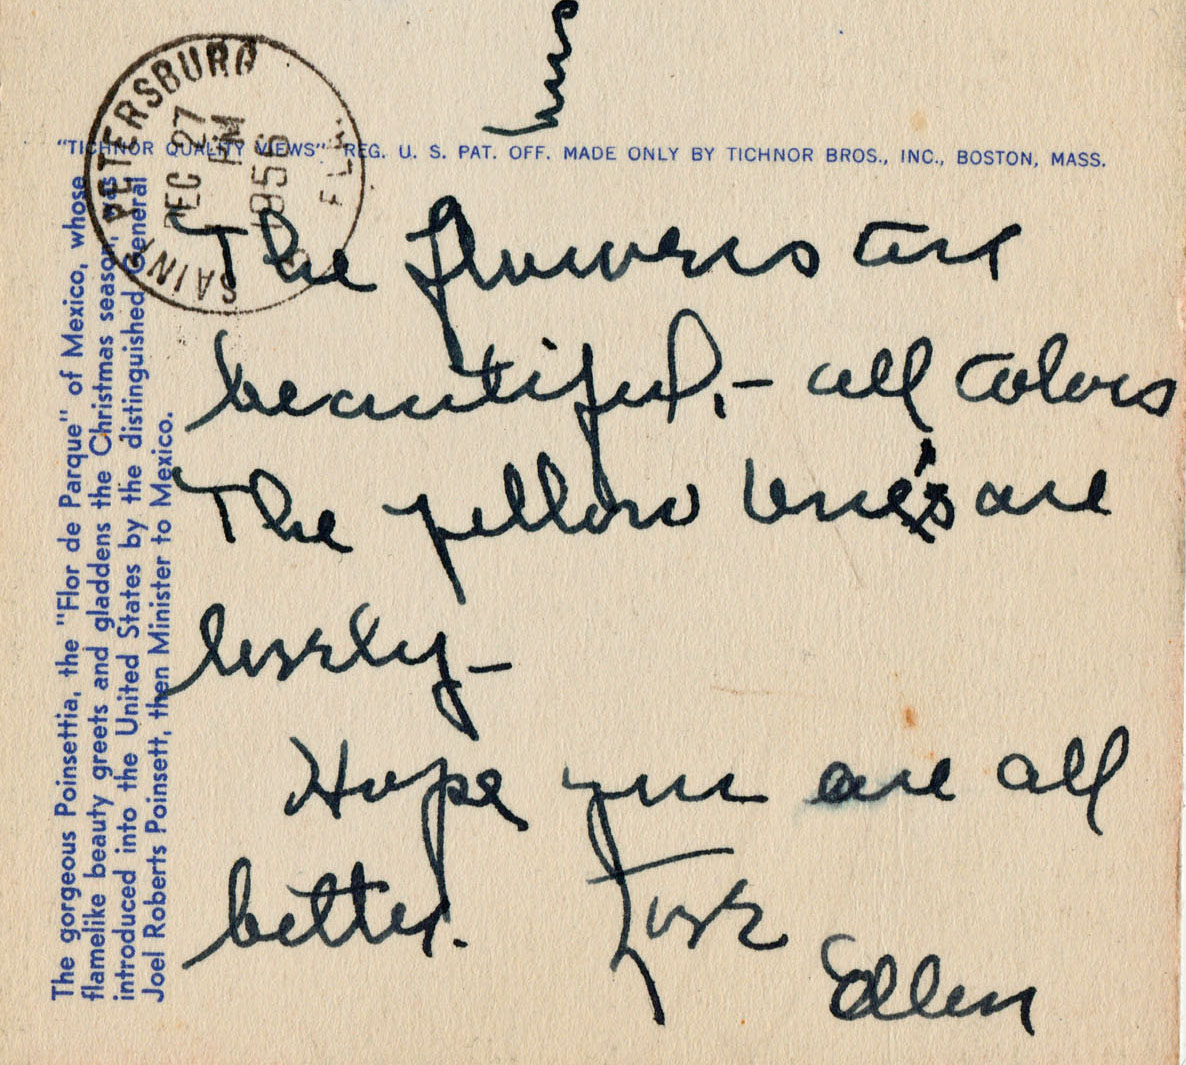 SAINT PETERSBURG
DEC 27
PM
1956
FLA.
"TICHNOR QUALITY VIEWS" REG. U. S. PAT. OFF. MADE ONLY BY TICHNOR BROS., INC., BOSTON, MASS.
The gorgeous Poinsettia, the "Flor de Parque" of Mexico, whose
flamelike beauty greets and gladdens the Christmas season, was
introduced into the United States by the distinguished General
Joel Roberts Poinsett, then Minister to Mexico.
The flowers are
beautiful, – all colors
The yellow one's are
lovely –
Hope you are all
better. Love
Ellen